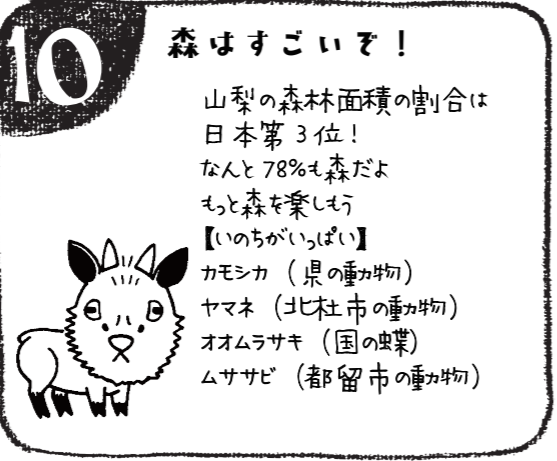 10
森はすごいぞ！
山梨の森林面積の割合は
日本第3位！
なんと78%も森だよ
もっと森を楽しもう
【いのちがいっぱい】
カモシカ（県の動物）
ヤマネ（北杜市の動物）
オオムラサキ（国の蝶）
ムササビ（都留市の動物）